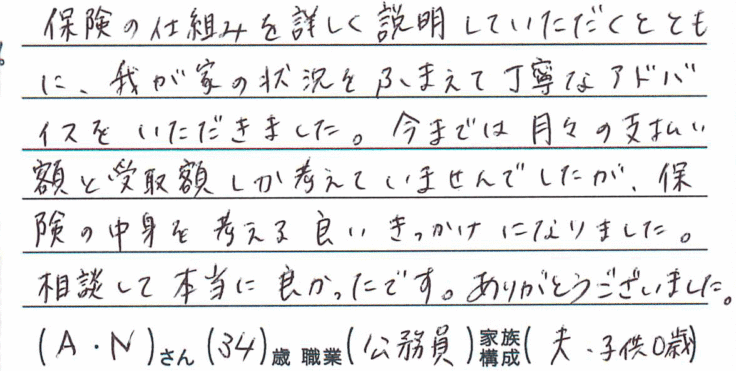 保険の仕組みを詳しく説明していただくととも
に、我が家の状況をふまえて丁寧なアドバ
イスをいただきました。今までは月々の支払い
額と受取額しか考えていませんでしたが、保
険の中身を考える良いきっかけになりました。
相談して本当に良かったです。ありがとうございました。
(A・N)さん(34)歳 職業(公務員)家族構成(夫・子供0歳)